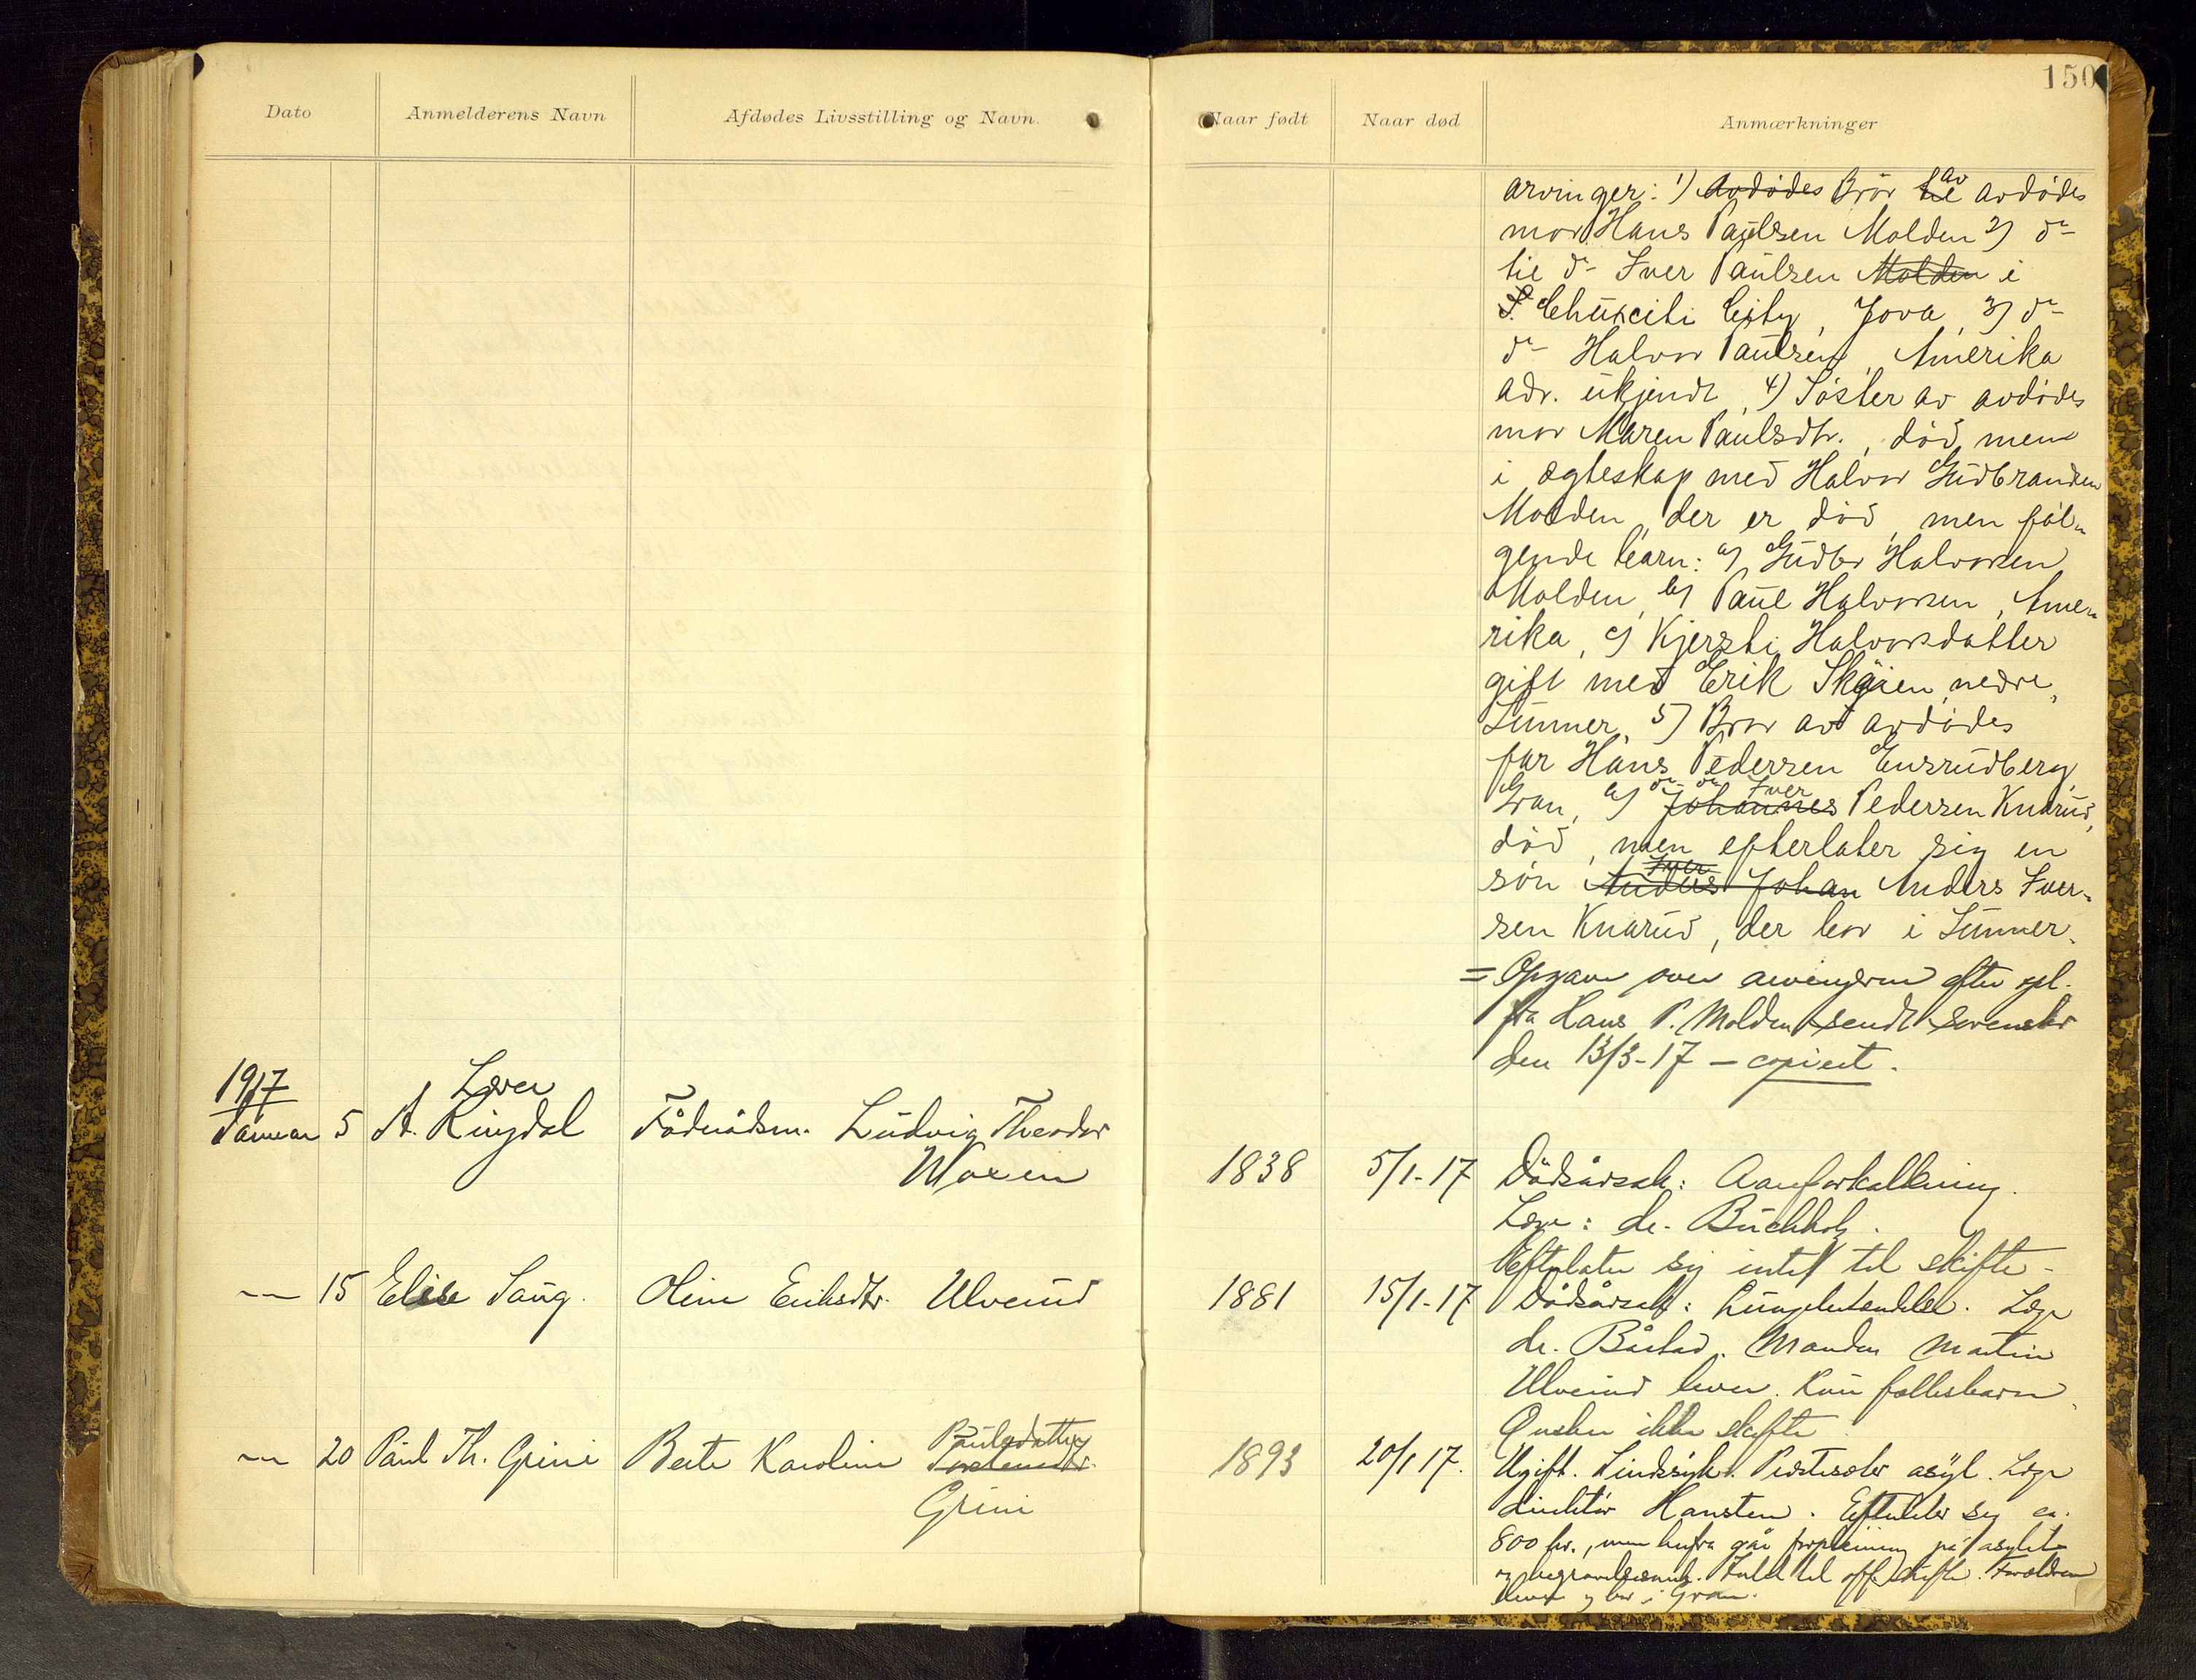 150
Dato
Anmelderens Navn
Afdødes Livsstilling og Navn.
Naar født
Naar død
Anmærkninger
arvinger: 1) Avdødes Bror til av avdødes
mor Hans Paulsen Molden 2) do
til do Iver Paulsen Molden i
City, Jova, 3) do
do Halvor Paulsen, Amerika
adr. ukjendt, 4) Søster av avdødes
mor Maren Paulsdtr., død, men
i ægteskap med Halvor Gudbrandsen
Molden, der er død, men føl-
gende barn: a) Gudbr Halvorsen
Molden, b) Paul Halvorsen, Ame-
rika, c) Kjersti Halvorsdatter
gift med Erik Skøien nedre,
Lunner, 5) Bror av avdødes
far Hans Pedersen Ensrudberg,
Gran, 6) do do Johannes Iver Pedersen Knarud,
død, men efterlater sig en
søn Anders Iver Johan Anders Iver-
sen Knarud, der bor i Lunner.
= Opgave over arvingerne efter opl.
fra Hans P. Molden sendt sorenskr
den 13/3-17 – copiert.
1917
Januar 5
Lover
A. Ringdal
Fådrådsm. Ludvig Theodor
Moxen
1838
5/1-17
Dødsårsak: Aareforkalkning.
Læge: dr. Buchholz.
Efterlater sig intet til skifte.
-"- 15
Elise Saug.
Oline Eriksdtr. Ulverud
1881
15/1-17
Dødsårsak: Lungebetændelse. Læge
dr. Båstad. Manden Martin
Ulverud lever. Kun fællesbarn.
Ønsker ikke skifte
-"- 20
Paul Th. Grini
Berte Karoline Paulsdatter
Grini
1893
20/1 17.
Ugift. Sindssyk. Presteseter asyl. Læge
direktør Hansten. Efterlater sig ca.
800 kr., men herfra går forpleining på asylet
og begravelsesomk. Intet til off. skifte. Forældrene
lever og bor i Gran.